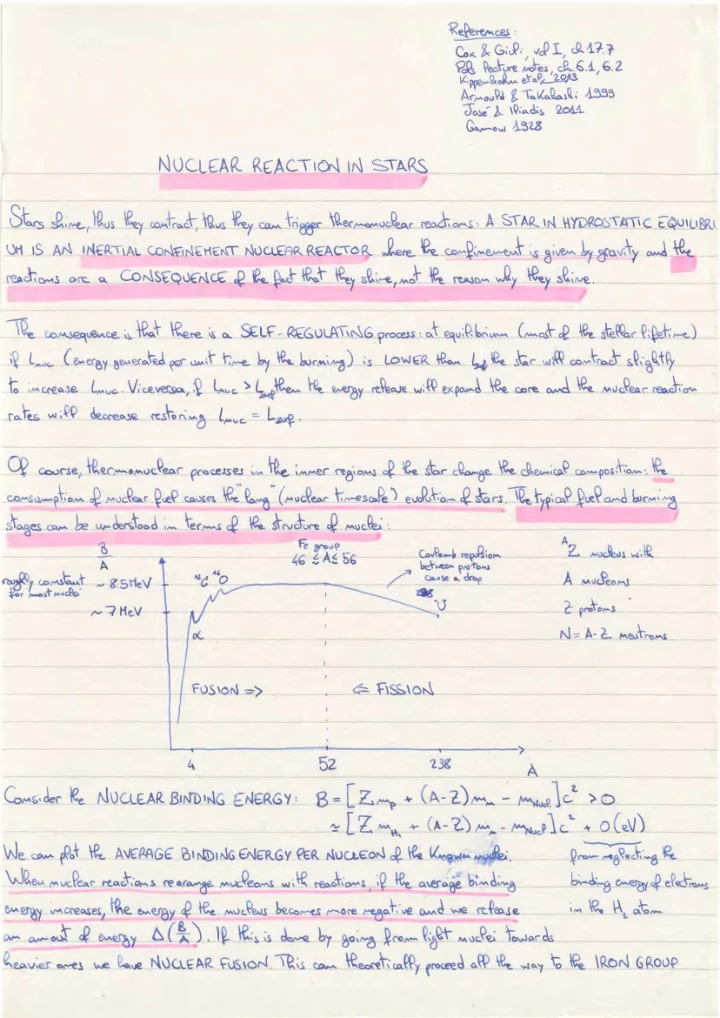 References:
Cox & Giuli, vol I, ch 17.7
Pols lecture notes, ch 6.1, 6.2
Kippenhahn et al. 2013
Arnould & Takahashi 1999
José & Iliadis 2011
Gamow 1928
NUCLEAR REACTION IN STARS
Stars shine, thus they contract, thus they can trigger thermonuclear reactions: A STAR IN HYDROSTATIC EQUILIBRI
UM IS AN INERTIAL CONFINEMENT NUCLEAR REACTOR where the confinement is given by gravity and the
reactions are a CONSEQUENCE of the fact that they shine, not the reason why they shine.
The consequence is that there is a SELF-REGULATING process: at equilibrium (most of the stellar lifetime)
if Lnuc (energy generated per unit time by the burning) is LOWER than Lsurf the star will contract slightly
to increase Lnuc. Viceversa, if Lnuc > Lsurf then the energy release will expand the core and the nuclear reaction
rates will decrease restoring Lnuc = Lsurf.
Of course, thermonuclear processes in the inner regions of the star change the chemical composition: the
consumption of nuclear fuel causes the "long" (nuclear timescale) evolution of stars. The typical fuel and burning
stages can be understood in terms of the structure of nuclei:
B/A
roughly constant ~ 8.5 MeV
for most nuclei
~ 7 MeV
α
¹²C ¹⁶O
Fe group
46 ≤ A ≤ 56
Coulomb repulsion
between protons
cause a drop
238
U
FUSION =>
<= FISSION
4 52 238 A
ᴬZ nucleus with
A nucleons
Z protons
N = A-Z neutrons
Consider the NUCLEAR BINDING ENERGY: B = [Z mp + (A-Z) mn - mnucl] c² > 0
≃ [Z mH₁ + (A-Z) mn - mnucl] c² + O(eV)
from neglecting the
binding energy of electrons
in the H₁ atom
We can plot the AVERAGE BINDING ENERGY PER NUCLEON of the known nuclei.
When nuclear reactions rearange nucleons with reactions, if the average binding
energy increases, the energy of the nucleus becomes more negative and we release
an amout of energy Δ(B/A). If this is done by going from light nuclei towards
heavier ones we have NUCLEAR FUSION. This can theoretically proceed all the way to the IRON GROUP